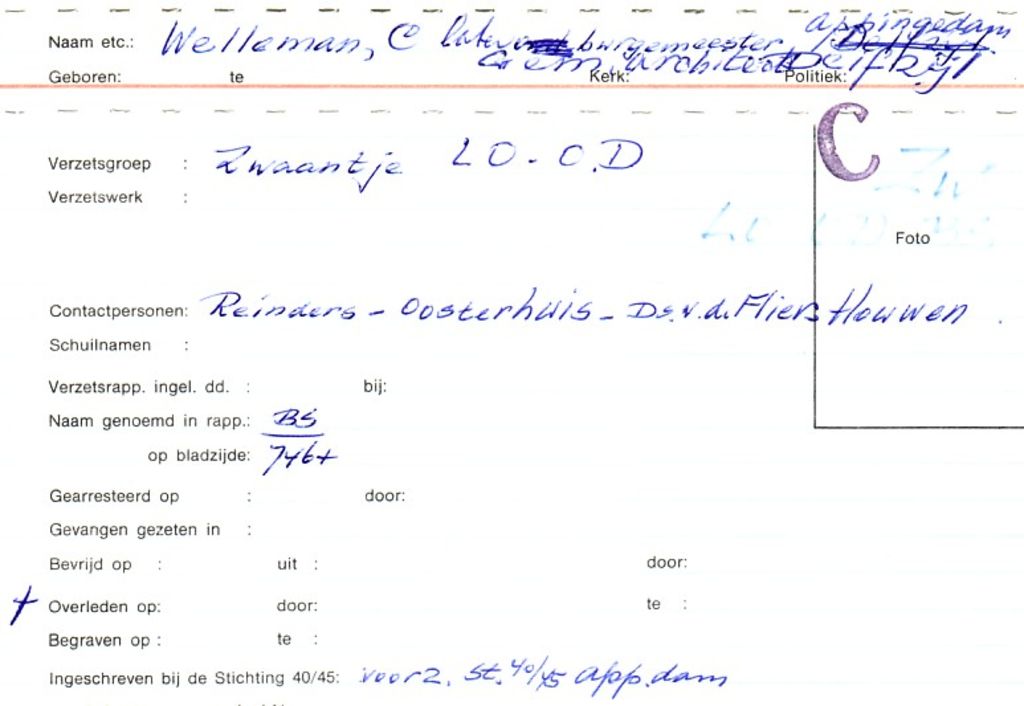 Appingedam
Naam etc.: Welleman, C later burgemeester, Delfzijl
Gem. architect Delfzijl
Geboren: te Kerk: Politiek:
C
Verzetsgroep : Zwaantje LO-O.D
Zw
Verzetswerk :
LO OD
Foto
Contactpersonen: Reinders - Oosterhuis - Ds. v.d. Fliers Houwen .
Schuilnamen :
Verzetsrapp. ingel. dd. : bij:
Naam genoemd in rapp.: BS
op bladzijde: 746+
Gearresteerd op : door:
Gevangen gezeten in :
Bevrijd op : uit : door:
† Overleden op: door: te :
Begraven op : te :
Ingeschreven bij de Stichting 40/45: voorz. St. 40/45 App.dam